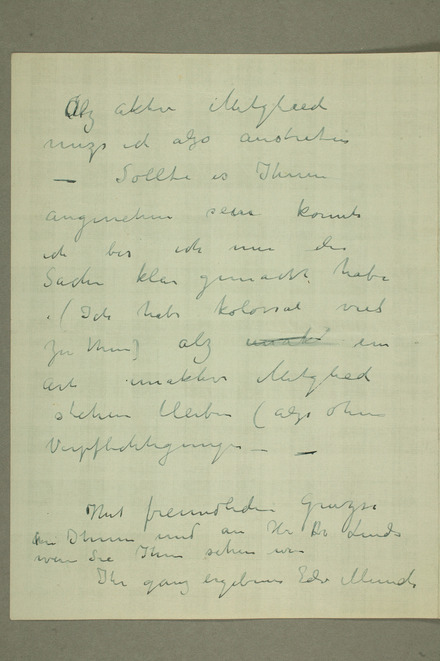 Alz aktiv Mitglied
muzs ich alzo austreten
— Sollte es Ihnen
angenehm sein konnte
ich bis ich mir die
Sache klar gemacht habe
(Ich habe kolossal viel
zu thun) alz inaktiv ein
art inaktivs Mitglied
stehen bleiben (alzo ohne
Verpflichtigunge — —
Mit freundlichen Gruzse
an Ihnen und an Hr Dr Linde
wen Sie Ihm sehen
Ihr ganz ergebens Edv Munch